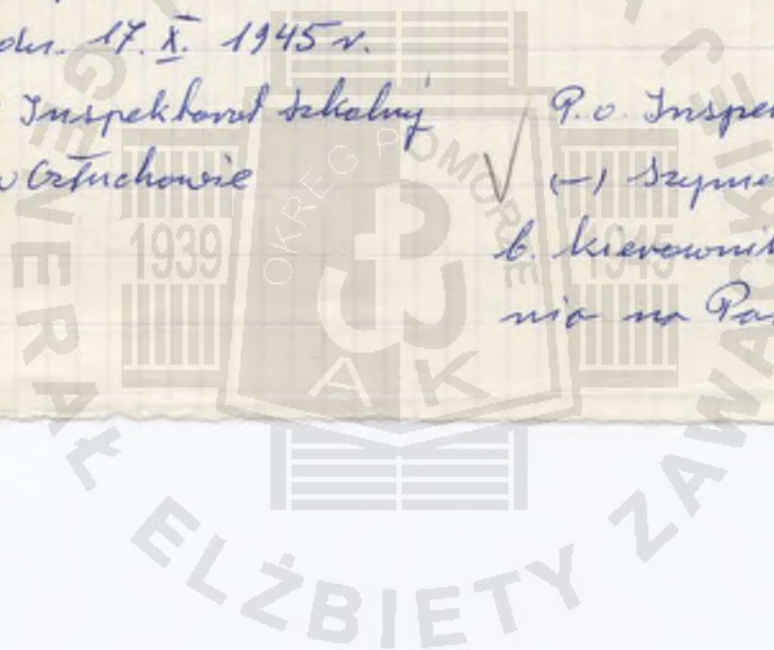 dn. 17. X. 1945 r.
Inspektorat Szkolny
w Człuchowie
P. o. Inspe
(-) Szyme
b. kierownik
nia na Pa
OKRĘG POMORZE
1939
1945
AK
GENERAŁ ELŻBIETY ZAWACKIEJ